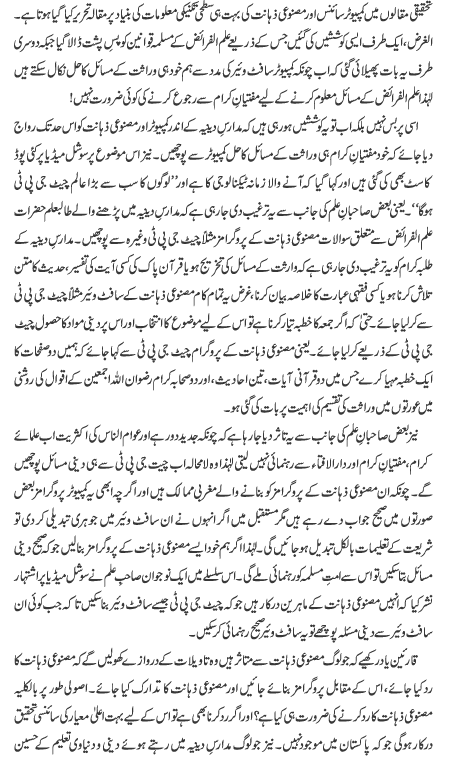 تحقیقی مقالوں میں کمپیوٹر سائنس اور مصنوعی ذہانت کی بہت ہی سطحی تکنیکی معلومات کی بنیاد پر مقالہ تحریر کیا گیا ہوتا ہے۔
الغرض، ایک طرف ایسی کوششیں کی گئیں جس کے ذریعے علم الفرائض کے مسلمہ قوانین کو پس پشت ڈالا گیا جبکہ دوسری
طرف یہ بات پھیلائی گئی کہ اب چونکہ کمپیوٹر سافٹ ویئر کی مدد سے ہم خود ہی وراثت کے مسائل کا حل نکال سکتے ہیں
لہٰذا علم الفرائض کے مسائل معلوم کرنے کے لیے مفتیانِ کرام سے رجوع کرنے کی کوئی ضرورت نہیں!
اسی پر بس نہیں بلکہ اب تو یہ کوششیں ہو رہی ہیں کہ مدارسِ دینیہ کے اندر کمپیوٹر اور مصنوعی ذہانت کو اس حد تک رواج
دیا جائے کہ خود مفتیانِ کرام ہی وراثت کے مسائل کا حل کمپیوٹر سے پوچھیں۔ نیز اس موضوع پر سوشل میڈیا پر کئی پوڈ
کاسٹ بھی کی گئی ہیں اور کہا گیا کہ آنے والا زمانہ ٹیکنالوجی کا ہے اور ’’لوگوں کا سب سے بڑا عالم چیٹ جی پی ٹی
ہوگا‘‘۔ یعنی بعض صاحبانِ علم کی جانب سے یہ ترغیب دی جا رہی ہے کہ مدارسِ دینیہ میں پڑھنے والے طالبعلم حضرات
علم الفرائض سے متعلق سوالات مصنوعی ذہانت کے پروگرامز مثلاً چیٹ جی پی ٹی وغیرہ سے پوچھیں۔ مدارسِ دینیہ کے
طلبہ کرام کو یہ ترغیب دی جا رہی ہے کہ وراثت کے مسائل کی تخریج ہو یا قرآن پاک کی کسی آیت کی تفسیر، حدیث کا متن
تلاش کرنا ہو یا کسی فقہی عبارت کا خلاصہ بیان کرنا، غرض یہ تمام کام مصنوعی ذہانت کے سافٹ ویئر مثلاً چیٹ جی پی ٹی
سے کرلیا جائے۔ حتیٰ کہ اگر جمعہ کا خطبہ تیار کرنا ہے تو اس کے لیے موضوع کا انتخاب اور اس پر دینی مواد کا حصول چیٹ
جی پی ٹی کے ذریعے کرلیا جائے۔ یعنی مصنوعی ذہانت کے پروگرام چیٹ جی پی ٹی سے کہا جائے کہ ہمیں دو صفحات کا
ایک خطبہ مہیا کرے جس میں دو قرآنی آیات، تین احادیث، اور دو صحابہ کرام رضوان اللہ اجمعین کے اقوال کی روشنی
میں عورتوں میں وراثت کی تقسیم کی اہمیت پر بات کی گئی ہو۔
نیز بعض صاحبانِ علم کی جانب سے یہ تاثر دیا جا رہا ہے کہ چونکہ جدید دور ہے اور عوام الناس کی اکثریت اب علمائے
کرام، مفتیانِ کرام اور دارالافتاء سے رہنمائی نہیں لیتی لہٰذا وہ لامحالہ اب چیٹ جی پی ٹی سے ہی دینی مسائل پوچھیں
گے۔ چونکہ ان مصنوعی ذہانت کے پروگرامز کو بنانے والے مغربی ممالک ہیں اور اگرچہ ابھی یہ کمپیوٹر پروگرامز بعض
صورتوں میں صحیح جواب دے رہے ہیں مگر مستقبل میں اگر انہوں نے ان سافٹ ویئر میں جوہری تبدیلی کر دی تو
شریعت کے تعلیمات بالکل تبدیل ہو جائیں گی۔ لہٰذا اگر ہم خود ایسے مصنوعی ذہانت کے پروگرامز بنالیں جو کہ صحیح دینی
مسائل بتا سکیں تو اس سے امتِ مسلمہ کو رہنمائی ملے گی۔ اس سلسلے میں ایک نوجوان صاحبِ علم نے سوشل میڈیا پر اشتہار
نشر کیا کہ انہیں مصنوعی ذہانت کے ماہرین درکار ہیں جو کہ چیٹ جی پی ٹی جیسے سافٹ ویئر بنا سکیں تاکہ جب کوئی ان
سافٹ ویئر سے دینی مسئلہ پوچھے تو یہ سافٹ ویئر صحیح رہنمائی کر سکیں۔
قارئین یاد رکھیے کہ جو لوگ مصنوعی ذہانت سے متاثر ہیں وہ تاویلات کے دروازے کھولیں گے کہ مصنوعی ذہانت کا
رد کیا جائے، اس کے مقابل پروگرامز بنائے جائیں اور مصنوعی ذہانت کا تدارک کیا جائے۔ اصولی طور پر بالکلیہ
مصنوعی ذہانت کا رد کرنے کی ضرورت ہی کیا ہے؟ اور اگر رد کرنا بھی ہے تو اس کے لیے بہت اعلیٰ معیار کی سائنسی تحقیق
درکار ہوگی جو کہ پاکستان میں موجود نہیں۔ نیز جو لوگ مدارسِ دینیہ میں رہتے ہوئے دینی و دنیاوی تعلیم کے حسین